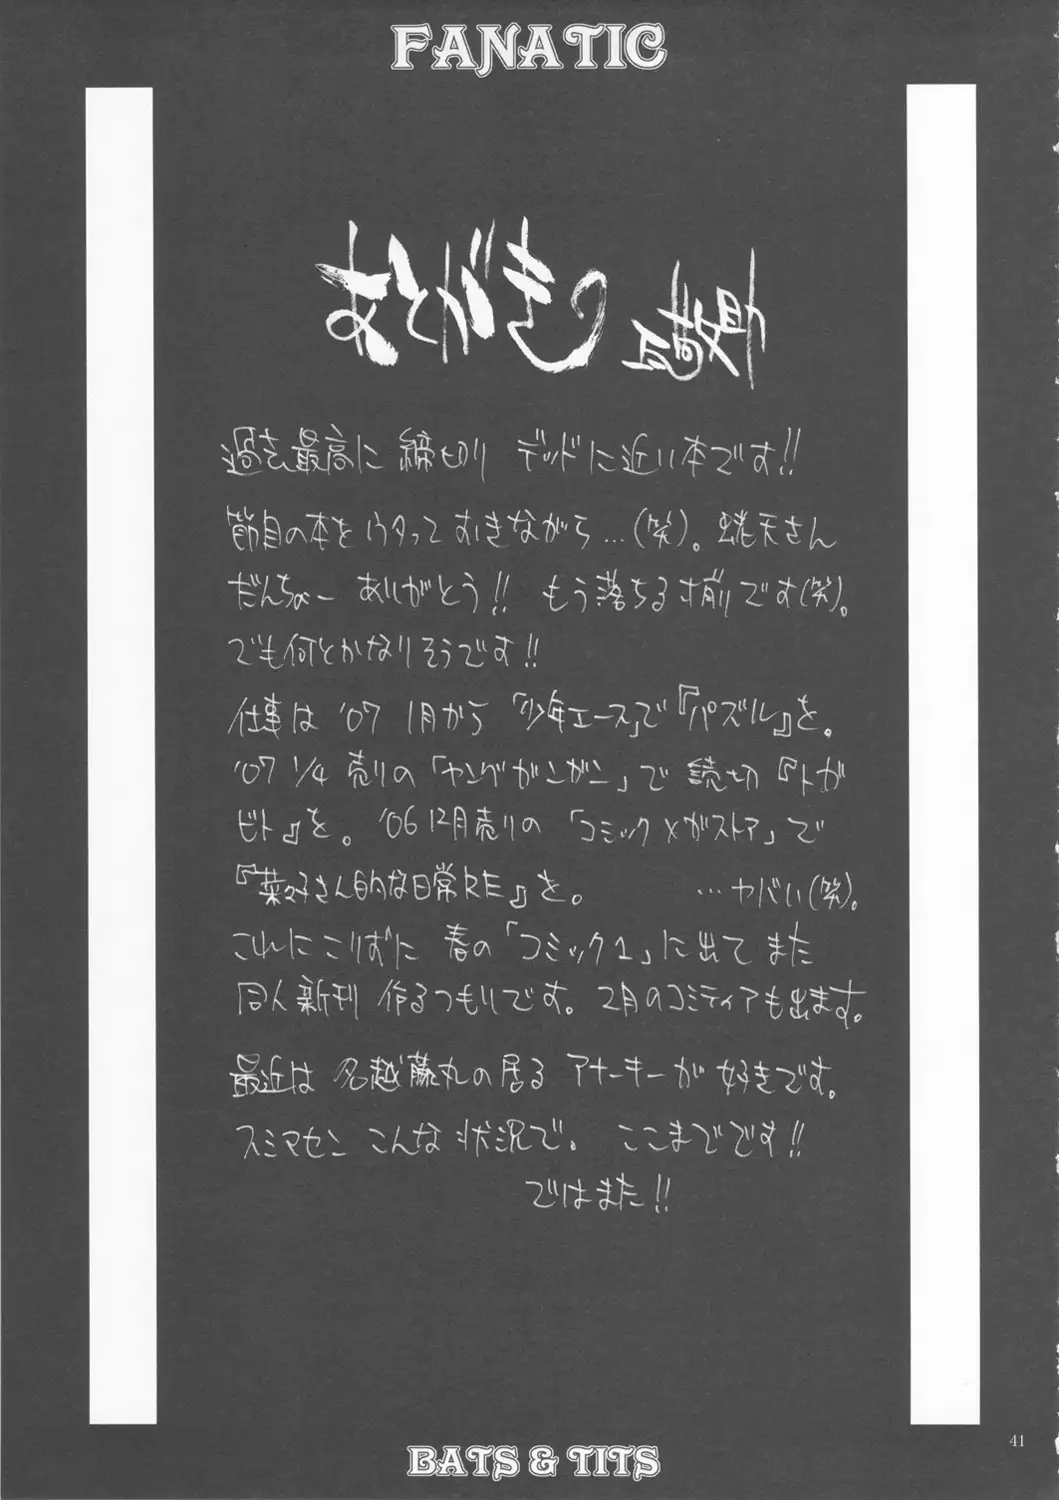 FANATIC
あとがき
過去最高に 締切り デッドに近い本です!!
節目の本をウタっておきながら…(笑)。蜷天さん
だんちょー ありがとう!! もう落ちる寸前です(笑)。
でも何とかなりそうです!!
仕事は '07 1月から「少年エース」で『パズル』を。
'07 1/4 売りの「ヤングガンガン」で 読切『トガ
ビト』を。 '06 12月売りの 「コミック×ガストア」で
『菜々子さん的な日常RE』を。 …ヤバい(笑)。
これにこりずに 春の「コミック1」に出て また
同人新刊 作るつもりです。2月のコミティアも出ます。
最近は 名越藤丸の居る アナーキーが 好きです。
スミマセン こんな 状況で。 ここまでです!!
ではまた!!
BATS & TITS
41